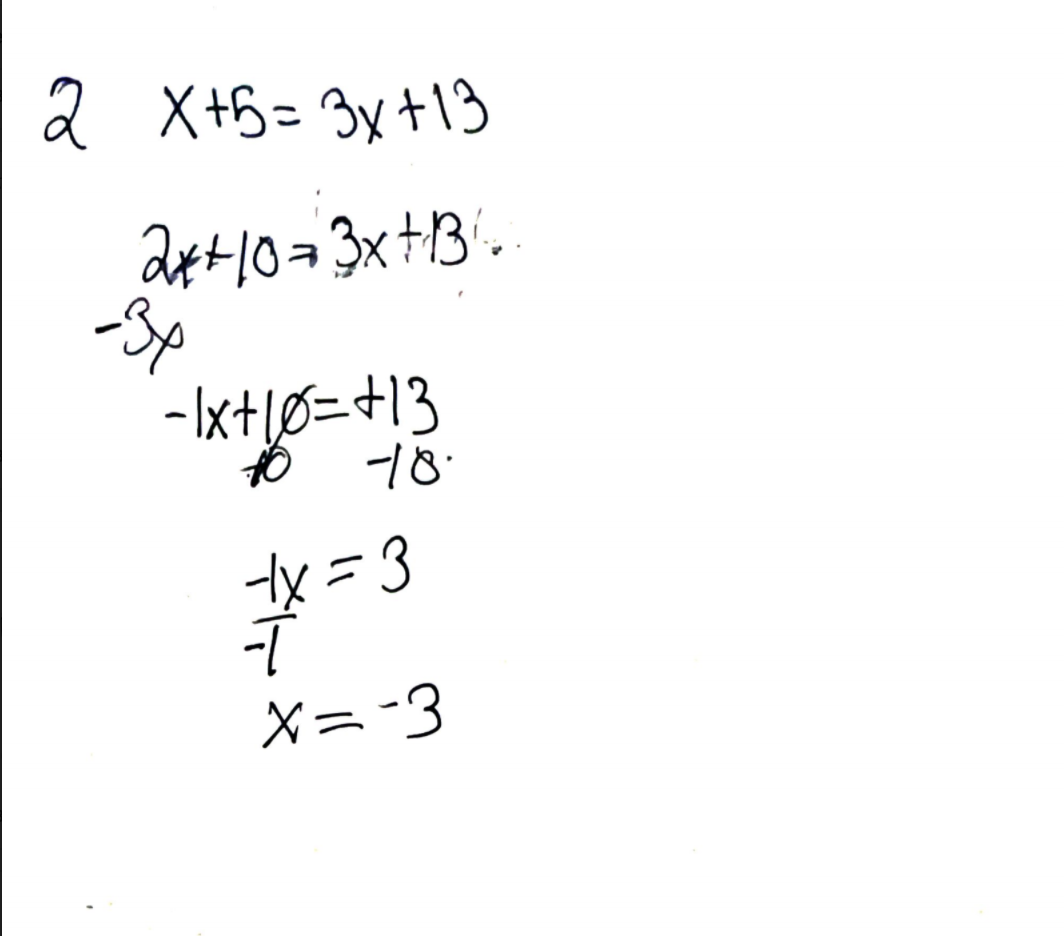 2 x+5=3x+13
2x+10=3x+13
-3x
-1x+10=+13
-10 -10
-1x=3
-1
x=-3